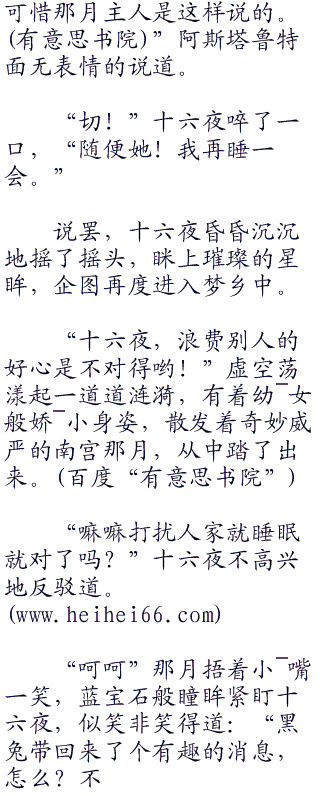 可惜那月主人是这样说的。
(有意思书院)”阿斯塔鲁特
面无表情的说道。
“切！”十六夜啐了一
口，“随便她！我再睡一
会。”
说罢，十六夜昏昏沉沉
地摇了摇头，眯上璀璨的星
眸，企图再度进入梦乡中。
“十六夜，浪费别人的
好心是不对得哟！”虚空荡
漾起一道道涟漪，有着幼¯女
般娇¯小身姿，散发着奇妙威
严的南宫那月，从中踏了出
来。(百度“有意思书院”)
“嘛嘛打扰人家就睡眠
就对了吗？”十六夜不高兴
地反驳道。
(www.heihei66.com)
“呵呵”那月捂着小¯嘴
一笑，蓝宝石般瞳眸紧盯十
六夜，似笑非笑得道：“黑
兔带回来了个有趣的消息，
怎么？不